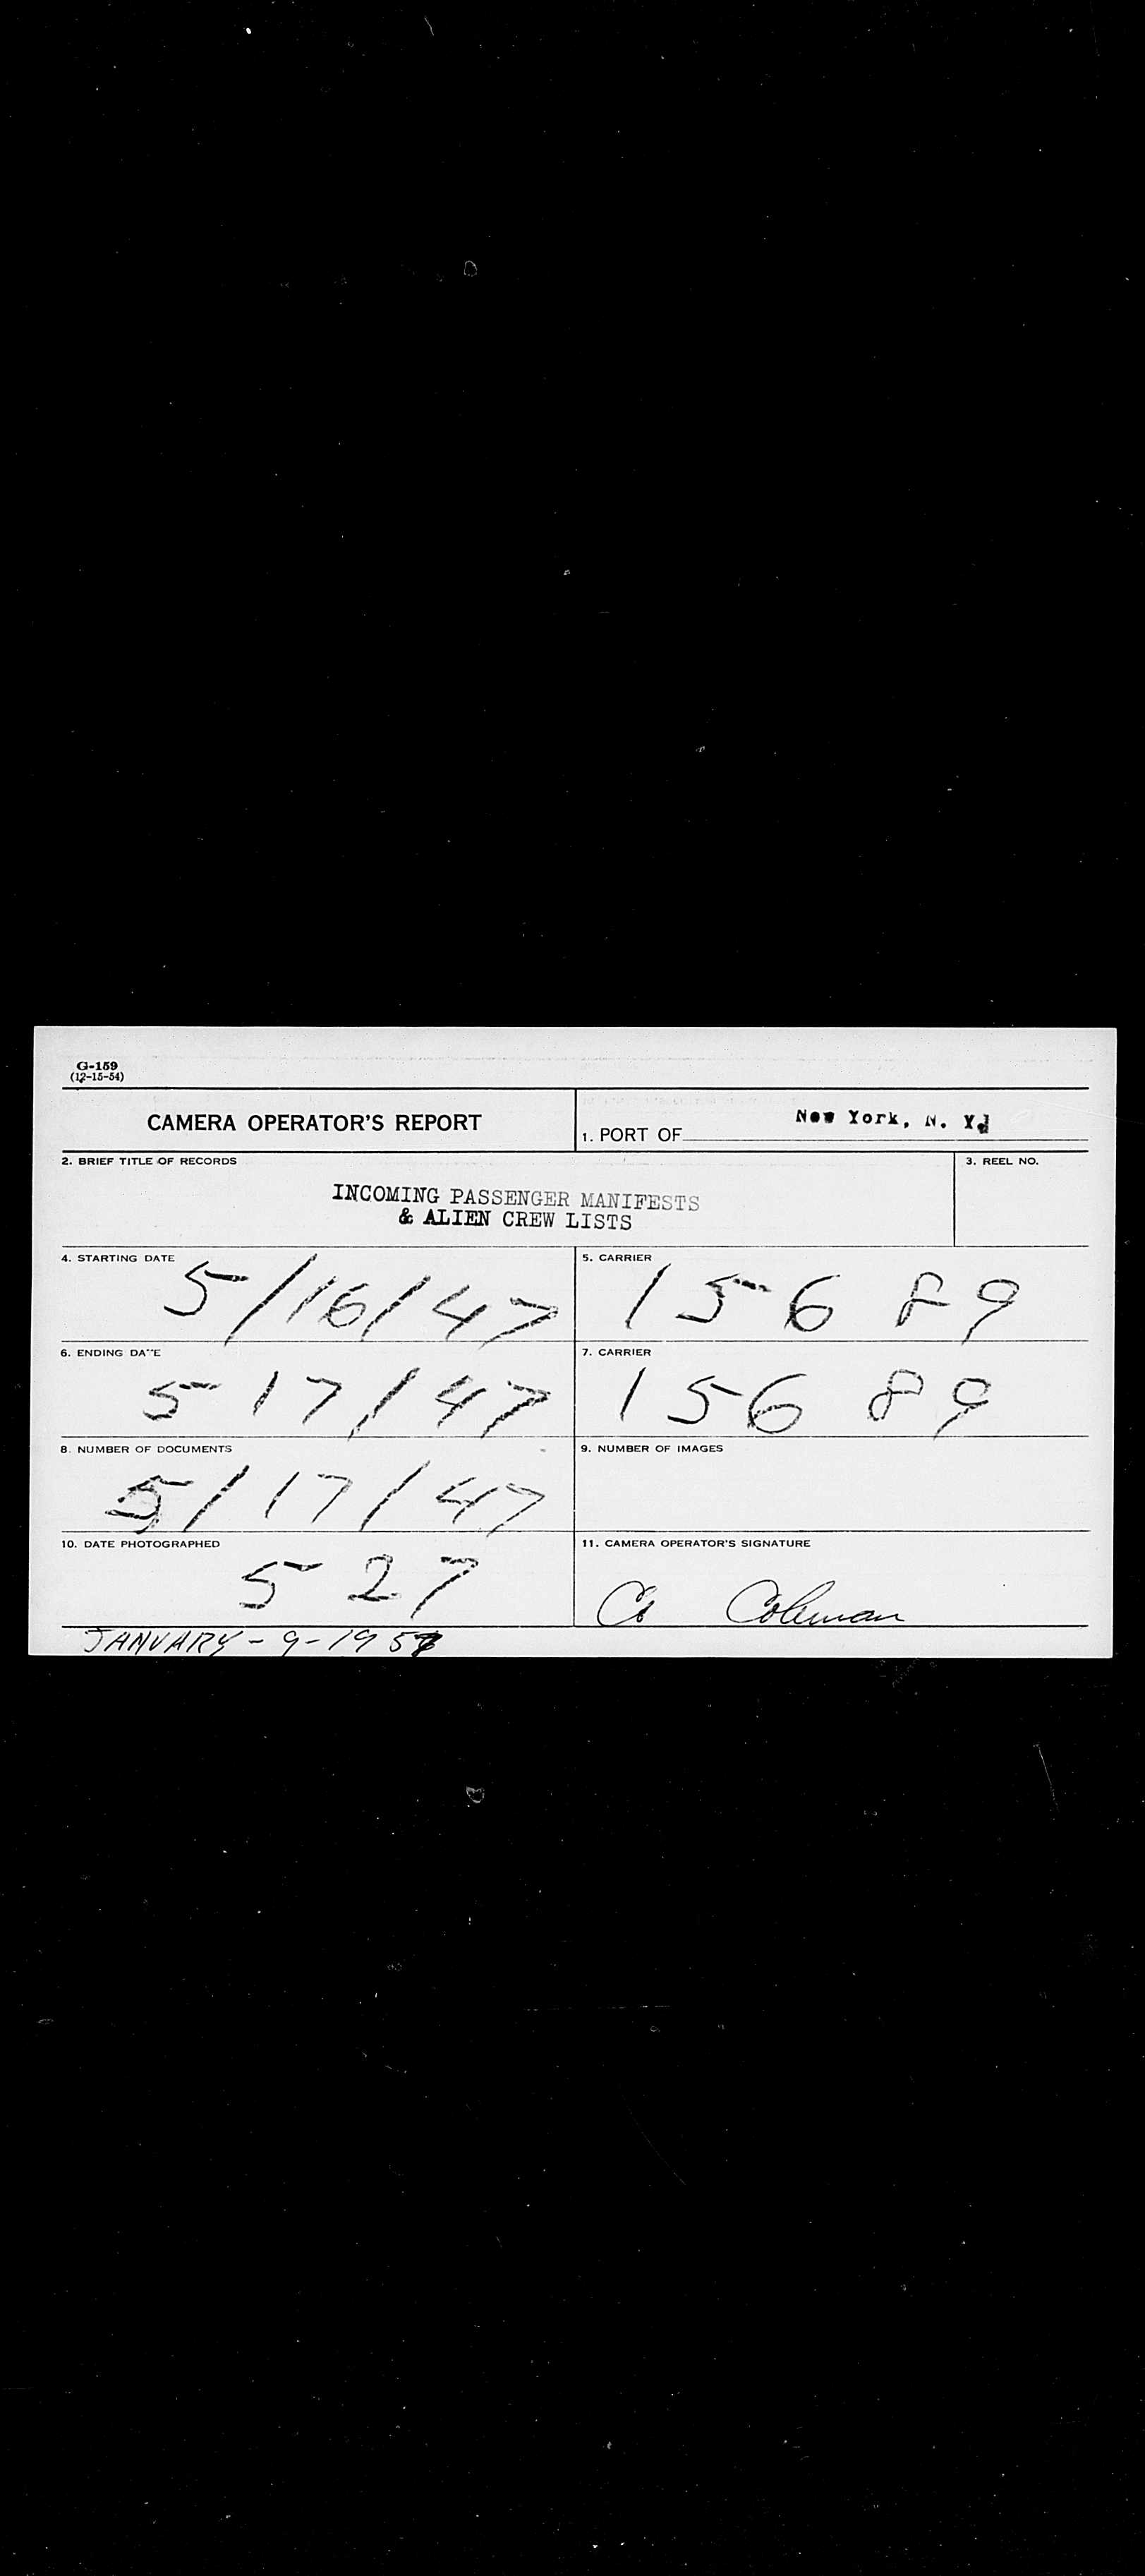 G-159
(12-15-54)
CAMERA OPERATOR'S REPORT
1. PORT OF New York, N. Y.
2. BRIEF TITLE OF RECORDS
3. REEL NO.
INCOMING PASSENGER MANIFESTS
& ALIEN CREW LISTS
4. STARTING DATE
5/16/47
5. CARRIER
15689
6. ENDING DATE
5 17/47
7. CARRIER
15689
8. NUMBER OF DOCUMENTS
5/17/47
9. NUMBER OF IMAGES
10. DATE PHOTOGRAPHED
527
11. CAMERA OPERATOR'S SIGNATURE
Coleman
JANUARY-9-195